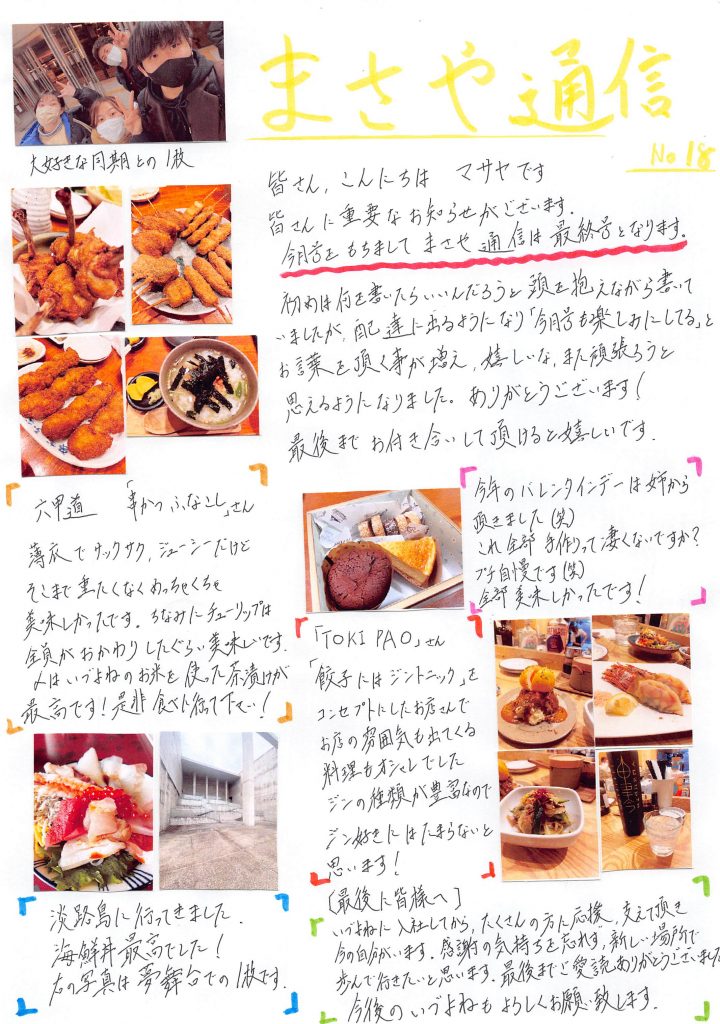 まさや通信
No 18
大好きな同期との1枚
皆さん、こんにちは マサヤです
皆さんに重要なお知らせがございます。
今月号をもちまして まさや通信は最終号となります。
初めは何を書いたらいいんだろうと頭を抱えながら書いて
いましたが、配達に出るようになり「今月号も楽しみにしてる」と
お言葉を頂く事が増え、嬉しいな、また頑張ろうと
思えるようになりました。ありがとうございます!
最後までお付き合いして頂けると嬉しいです。
六甲道 「串かつ ふなこし」さん
薄衣でサックサク、ジューシーだけど
そこまで重たくなくめっちゃくちゃ
美味しかったです。ちなみにチューリップは
全員がおかわりしたぐらい美味しいです。
〆はいづよねのお米を使った茶漬けが
最高です!是非食べに行って下さい!
今年のバレンタインデーは姉から
頂きました(笑)
これ全部 手作りって凄くないですか?
プチ自慢です(笑)
全部美味しかったです!
「TOKI PAO」さん
「餃子にはジントニック」を
コンセプトにしたお店さんで
お店の雰囲気も出てくる
料理もオシャレでした
ジンの種類が豊富なので
ジン好きにはたまらないと
思います!
淡路島に行ってきました。
海鮮丼最高でした!
右の写真は夢舞台での1枚です。
[最後に皆様へ]
いづよねに入社してから、たくさんの方に応援、支えて頂き
今の自分がいます。感謝の気持ちを忘れず、新しい場所で
歩んで行きたいと思います。最後までご愛読ありがとうございました
今後のいづよねもよろしくお願い致します。